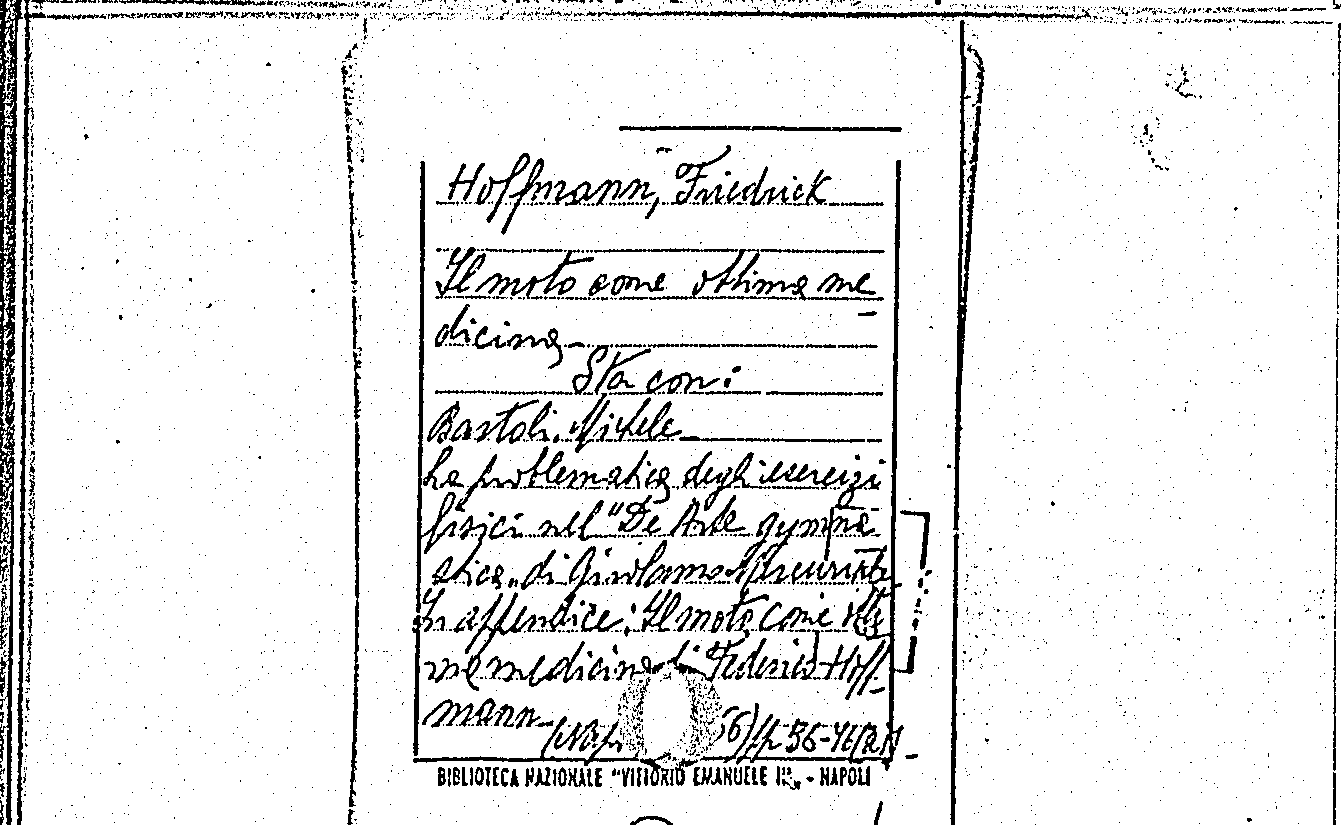 Hoffmann, Friedrick
Il moto come ottima me
dicina
Sta con:
Bartoli, Michele
La problematica degli esercizi
fisici nel "De Arte gymna
stica" di Girolamo Mercuriale
In appendice: Il moto come otti
ma medicina di Federico Hoff
mann
(Nap 56) p. 36-46
BIBLIOTECA NAZIONALE "VITTORIO EMANUELE III" - NAPOLI